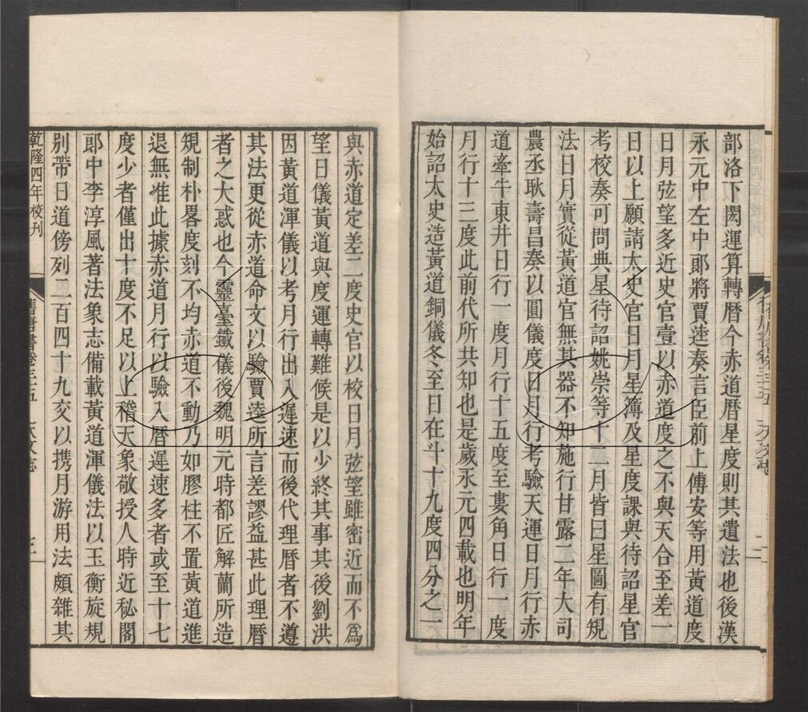 部洛下閎運算轉曆今赤道曆星度則其遺法也後漢
永元中左中郎將賈逵奏言臣前上傅安等用黃道度
日月弦望多近史官壹以赤道度之不與天合至差一
日以上願請太史官日月星簿及星度課與待詔星官
考校奏可問典星待詔姚崇等十二月皆曰星圖有規
法日月實從黃道官無其器不知施行甘露二年大司
農丞耿壽昌奏以圓儀度日月行考驗天運日月行赤
道牽牛東井日行一度月行十五度至婁角日行一度
月行十三度此前代所共知也是歲永元四載也明年
始詔太史造黃道銅儀冬至日在斗十九度四分之一
與赤道定差二度史官以校日月弦望雖密近而不為
望日儀黃道與度運轉難候是以少終其事其後劉洪
因黃道渾儀以考月行出入遲速而後代理曆者不遵
其法更從赤道命文以驗賈逵所言差謬益甚此理曆
者之大惑也今靈臺鐵儀後魏明元時都匠解蘭所造
規制朴畧度刻不均赤道不動乃如膠柱不置黃道進
退無准此據赤道月行以驗入曆遲速多者或至十七
度少者僅出十度不足以上稽天象敬授人時近秘閣
郎中李淳風著法象志備載黃道渾儀法以玉衡旋規
別帶日道傍列二百四十九交以携月游用法頗雜其
乾隆四年校刊
舊唐書卷三十五 天文志